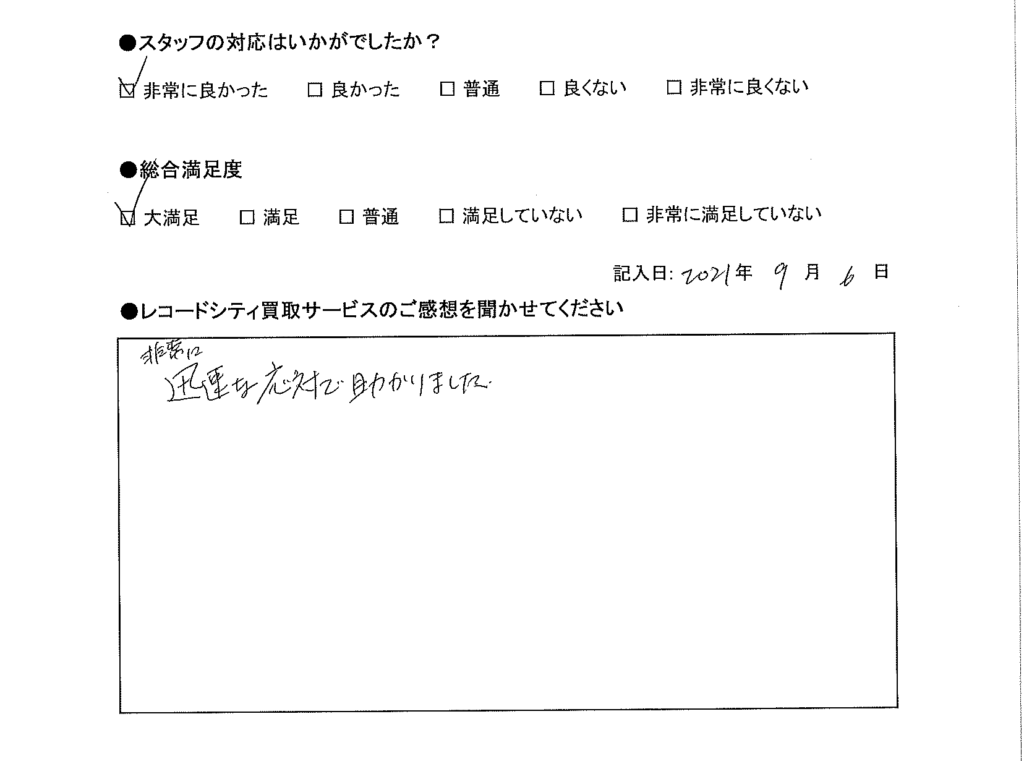 ●スタッフの対応はいかがでしたか？
☑ 非常に良かった □ 良かった □ 普通 □ 良くない □ 非常に良くない
●総合満足度
☑ 大満足 □ 満足 □ 普通 □ 満足していない □ 非常に満足していない
記入日: 2021年 9月 6日
●レコードシティ買取サービスのご感想を聞かせてください
非常に
迅速な応対で助かりました。